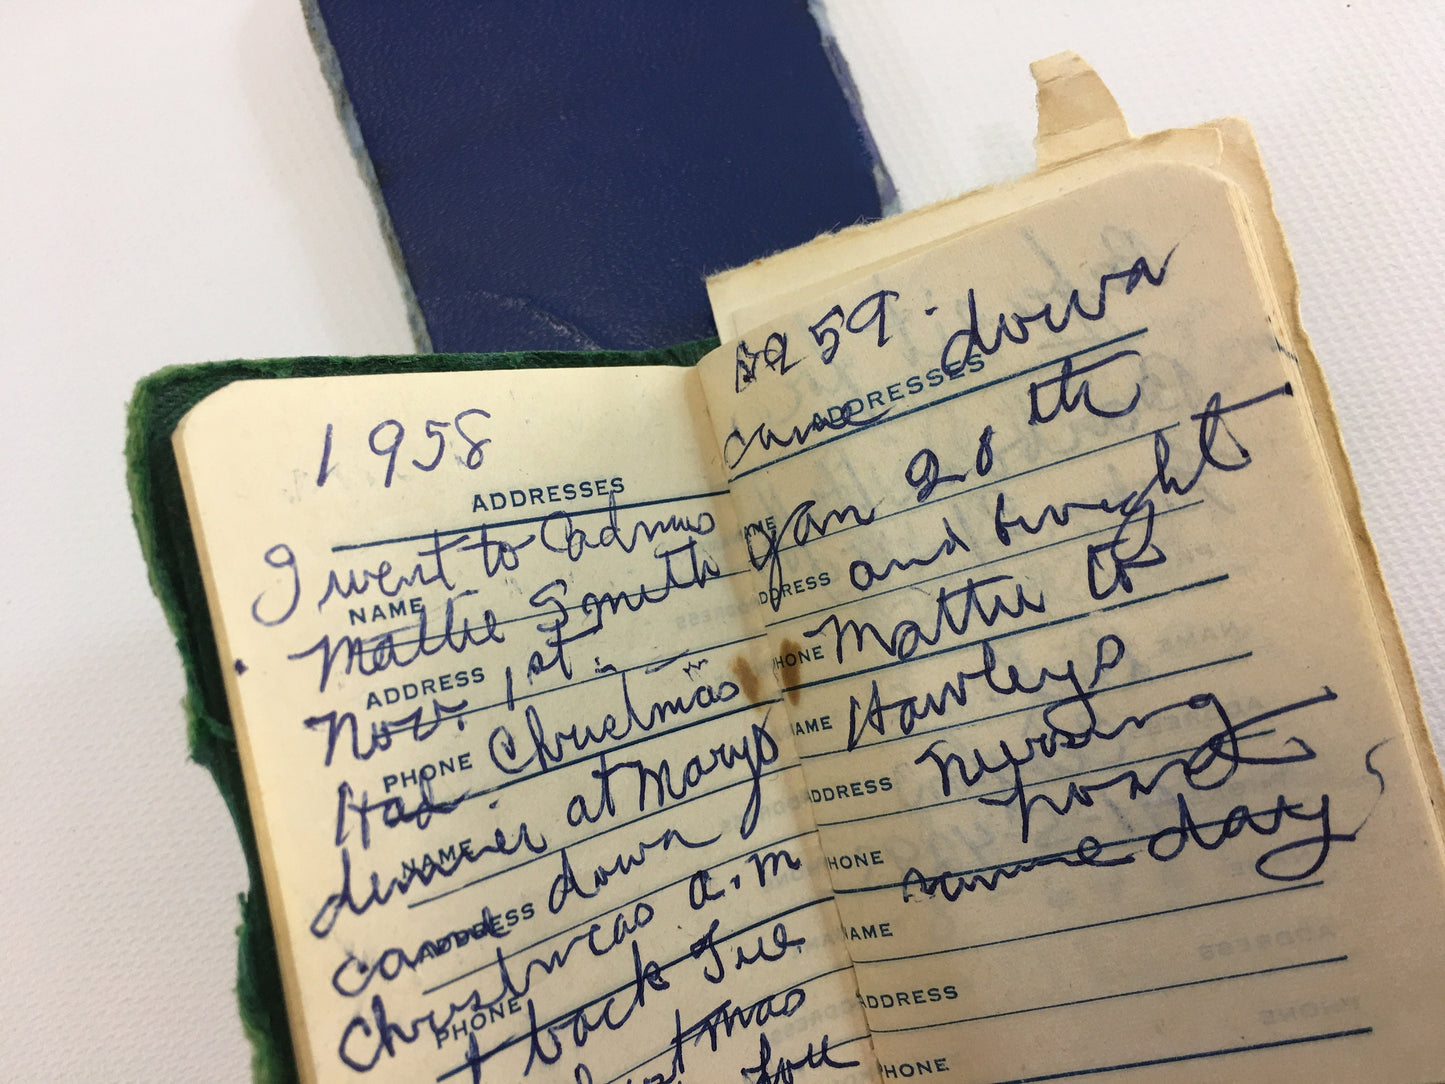 1958
ADDRESSES
I went to Cadmus
NAME
Mattie Smith
ADDRESS
Nov. 1st.
PHONE Christmas
Had
dinner at Marys
NAME
came down
ADDRESS
Christmas a.m
PHONE
back Tue.
1959. down
ADDRESSES
came
NAME
Jan 20th
ADDRESS and brought
PHONE Mattie to
NAME Hawleys
ADDRESS nursing
PHONE
same day
NAME
ADDRESS
PHONE